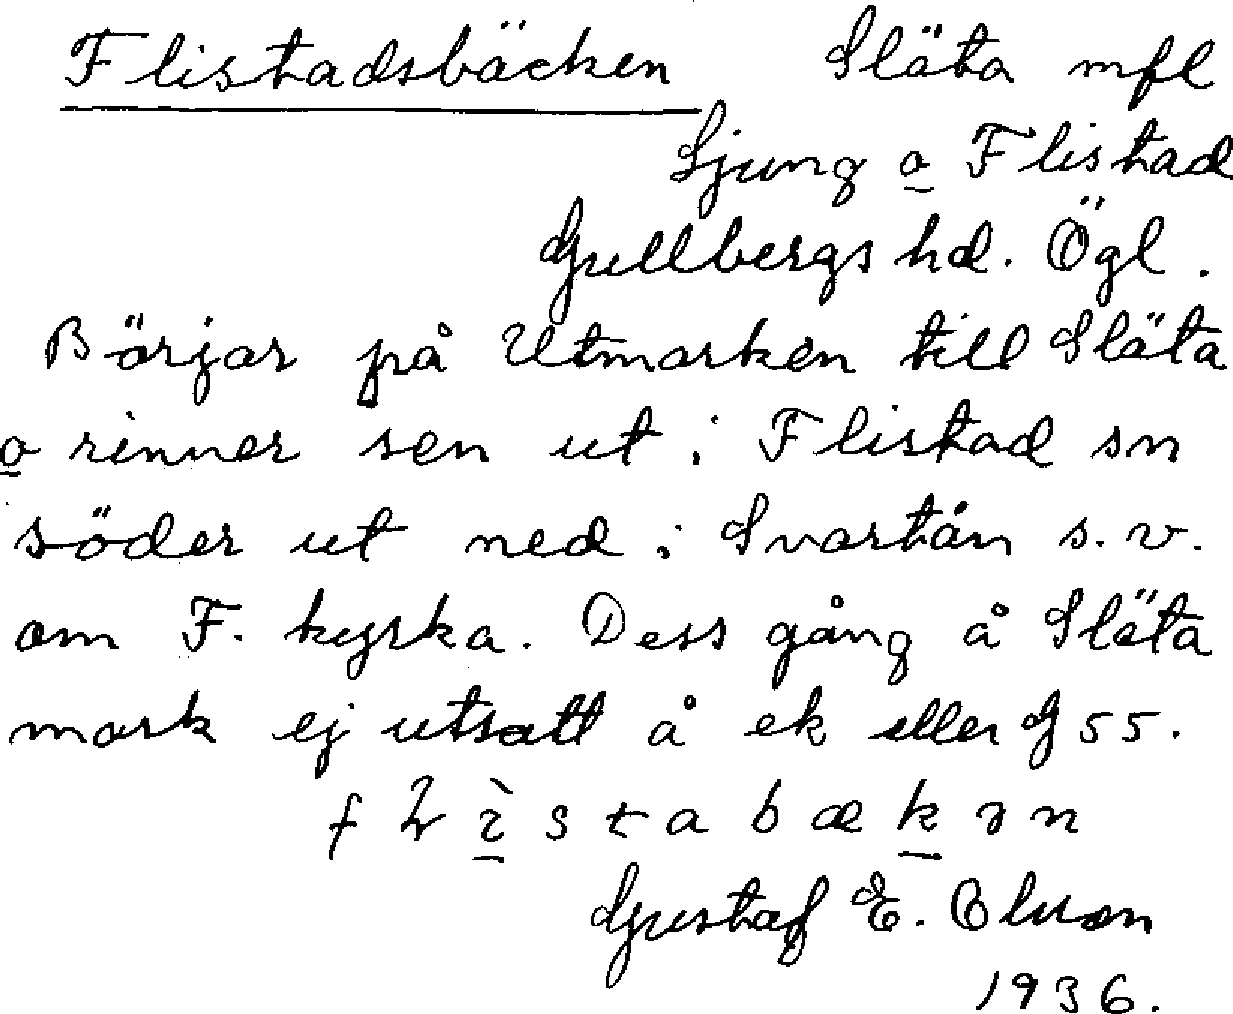 Flistadsbäcken Släta mfl
Ljung o Flistad
Gullbergs hd. Ögl.
Börjar på Utmarken till Släta
o rinner sen ut i Flistad sn
söder ut ned i Svartån s.v.
om F. kyrka. Dess gång å Släta
mark ej utsatt å ek eller G 55.
Gustaf E. Olson
1936.